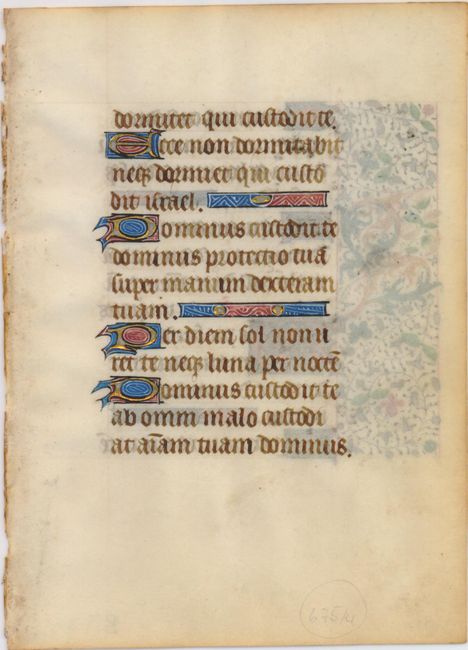 dormitet qui custodit te.
Ecce non dormitabit
neqȝ dormiet qui custo
dit israel.
Dominus custodit te
dominus protectio tua
super manum dexteram
tuam.
Per diem sol non u
ret te neqȝ luna per noctē
Dominus custodit te
ab omni malo custodi
at aīam tuam dominus.